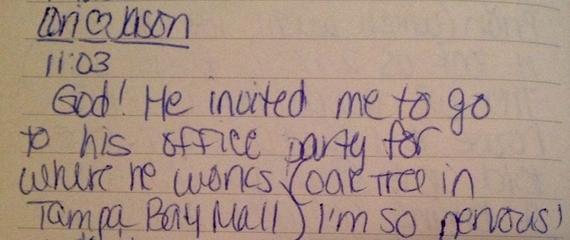 Lori ♡ Jason
11:03
God! He invited me to go
to his office party for
where he works (oak tree in
Tampa Bay Mall) I'm so nervous!